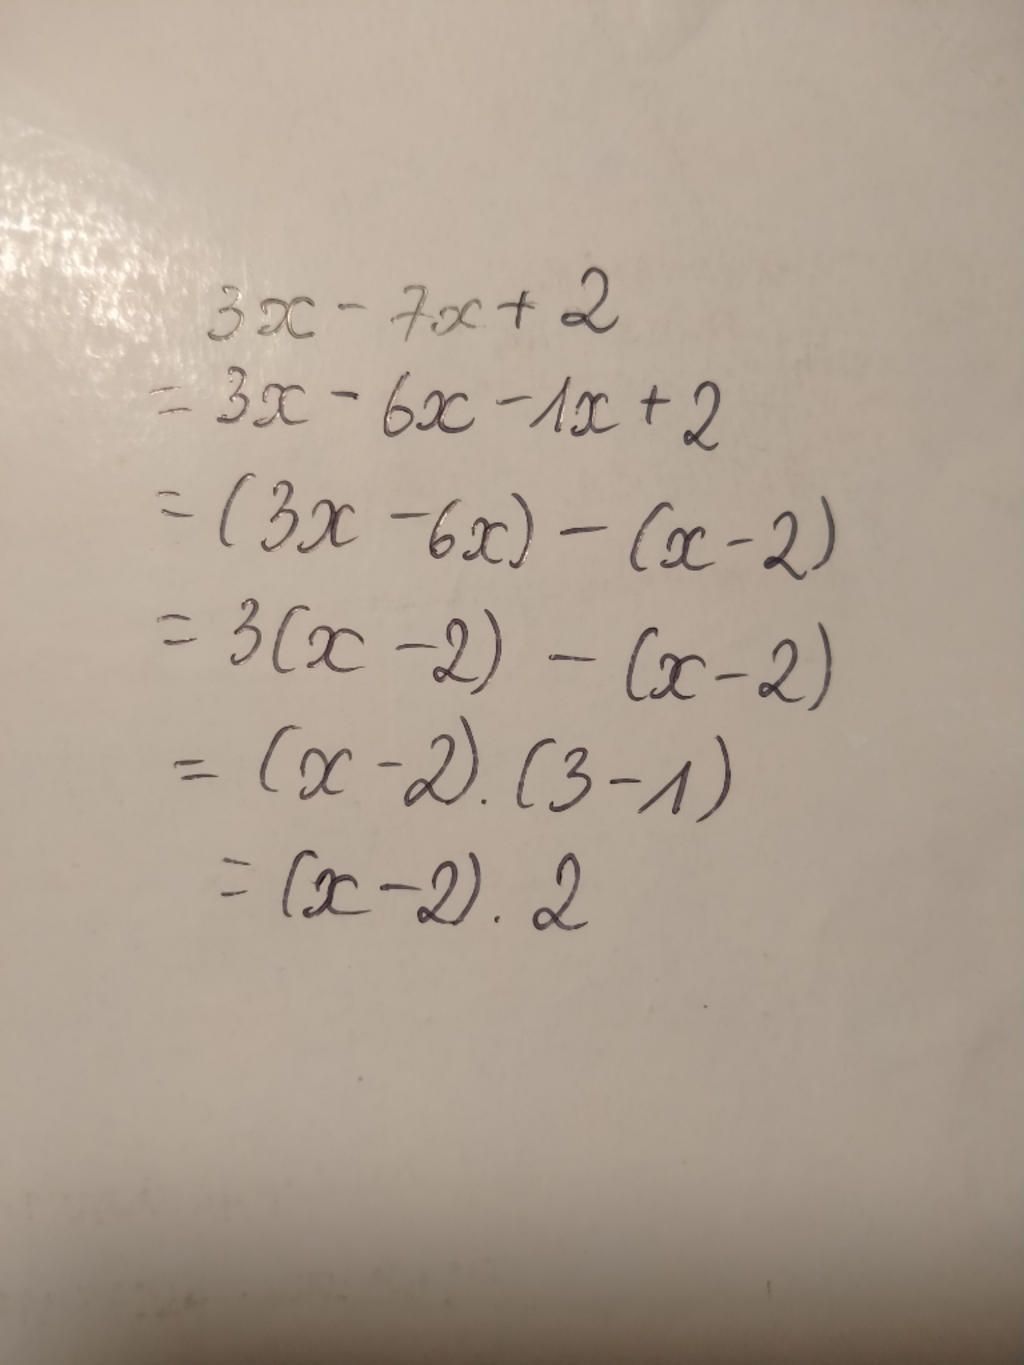 3x - 7x + 2
= 3x - 6x - 1x + 2
= (3x - 6x) - (x - 2)
= 3(x - 2) - (x - 2)
= (x - 2) . (3 - 1)
= (x - 2) . 2